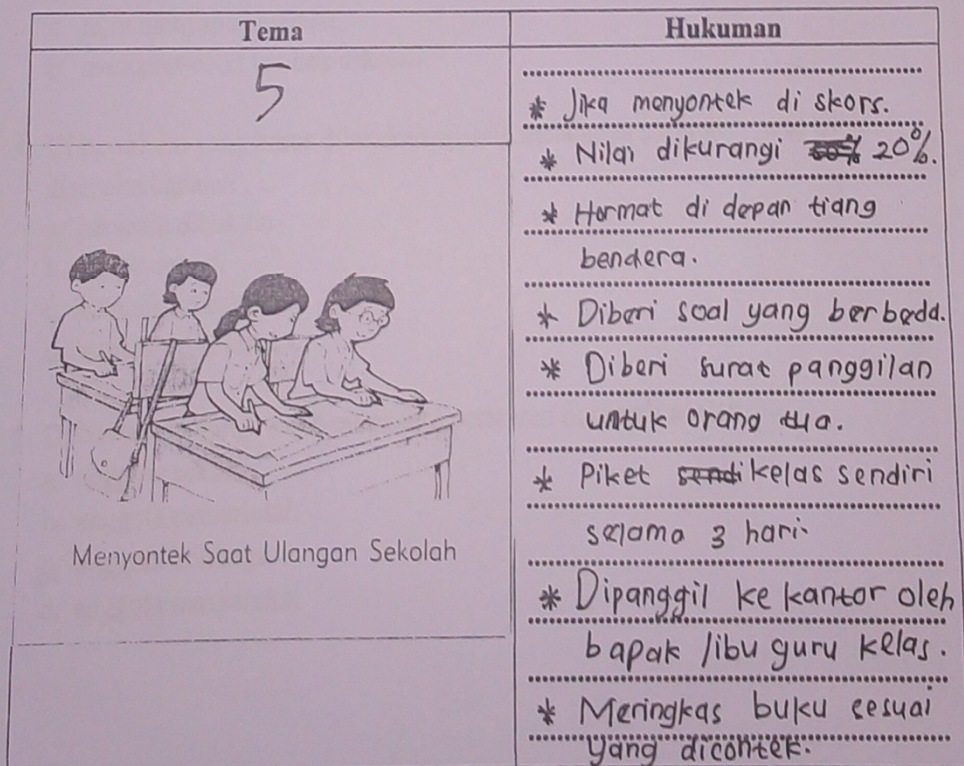 Tema
Hukuman
5
Menyontek Saat Ulangan Sekolah
* Jika menyontek di skors.
* Nilai dikurangi 20%.
* Hormat di depan tiang
bendera.
* Diberi soal yang berbeda.
* Diberi surat panggilan
untuk orang tua.
* Piket kelas sendiri
selama 3 hari.
* Dipanggil ke kantor oleh
bapak /ibu guru kelas.
* Meringkas buku sesuai
yang dicontek.